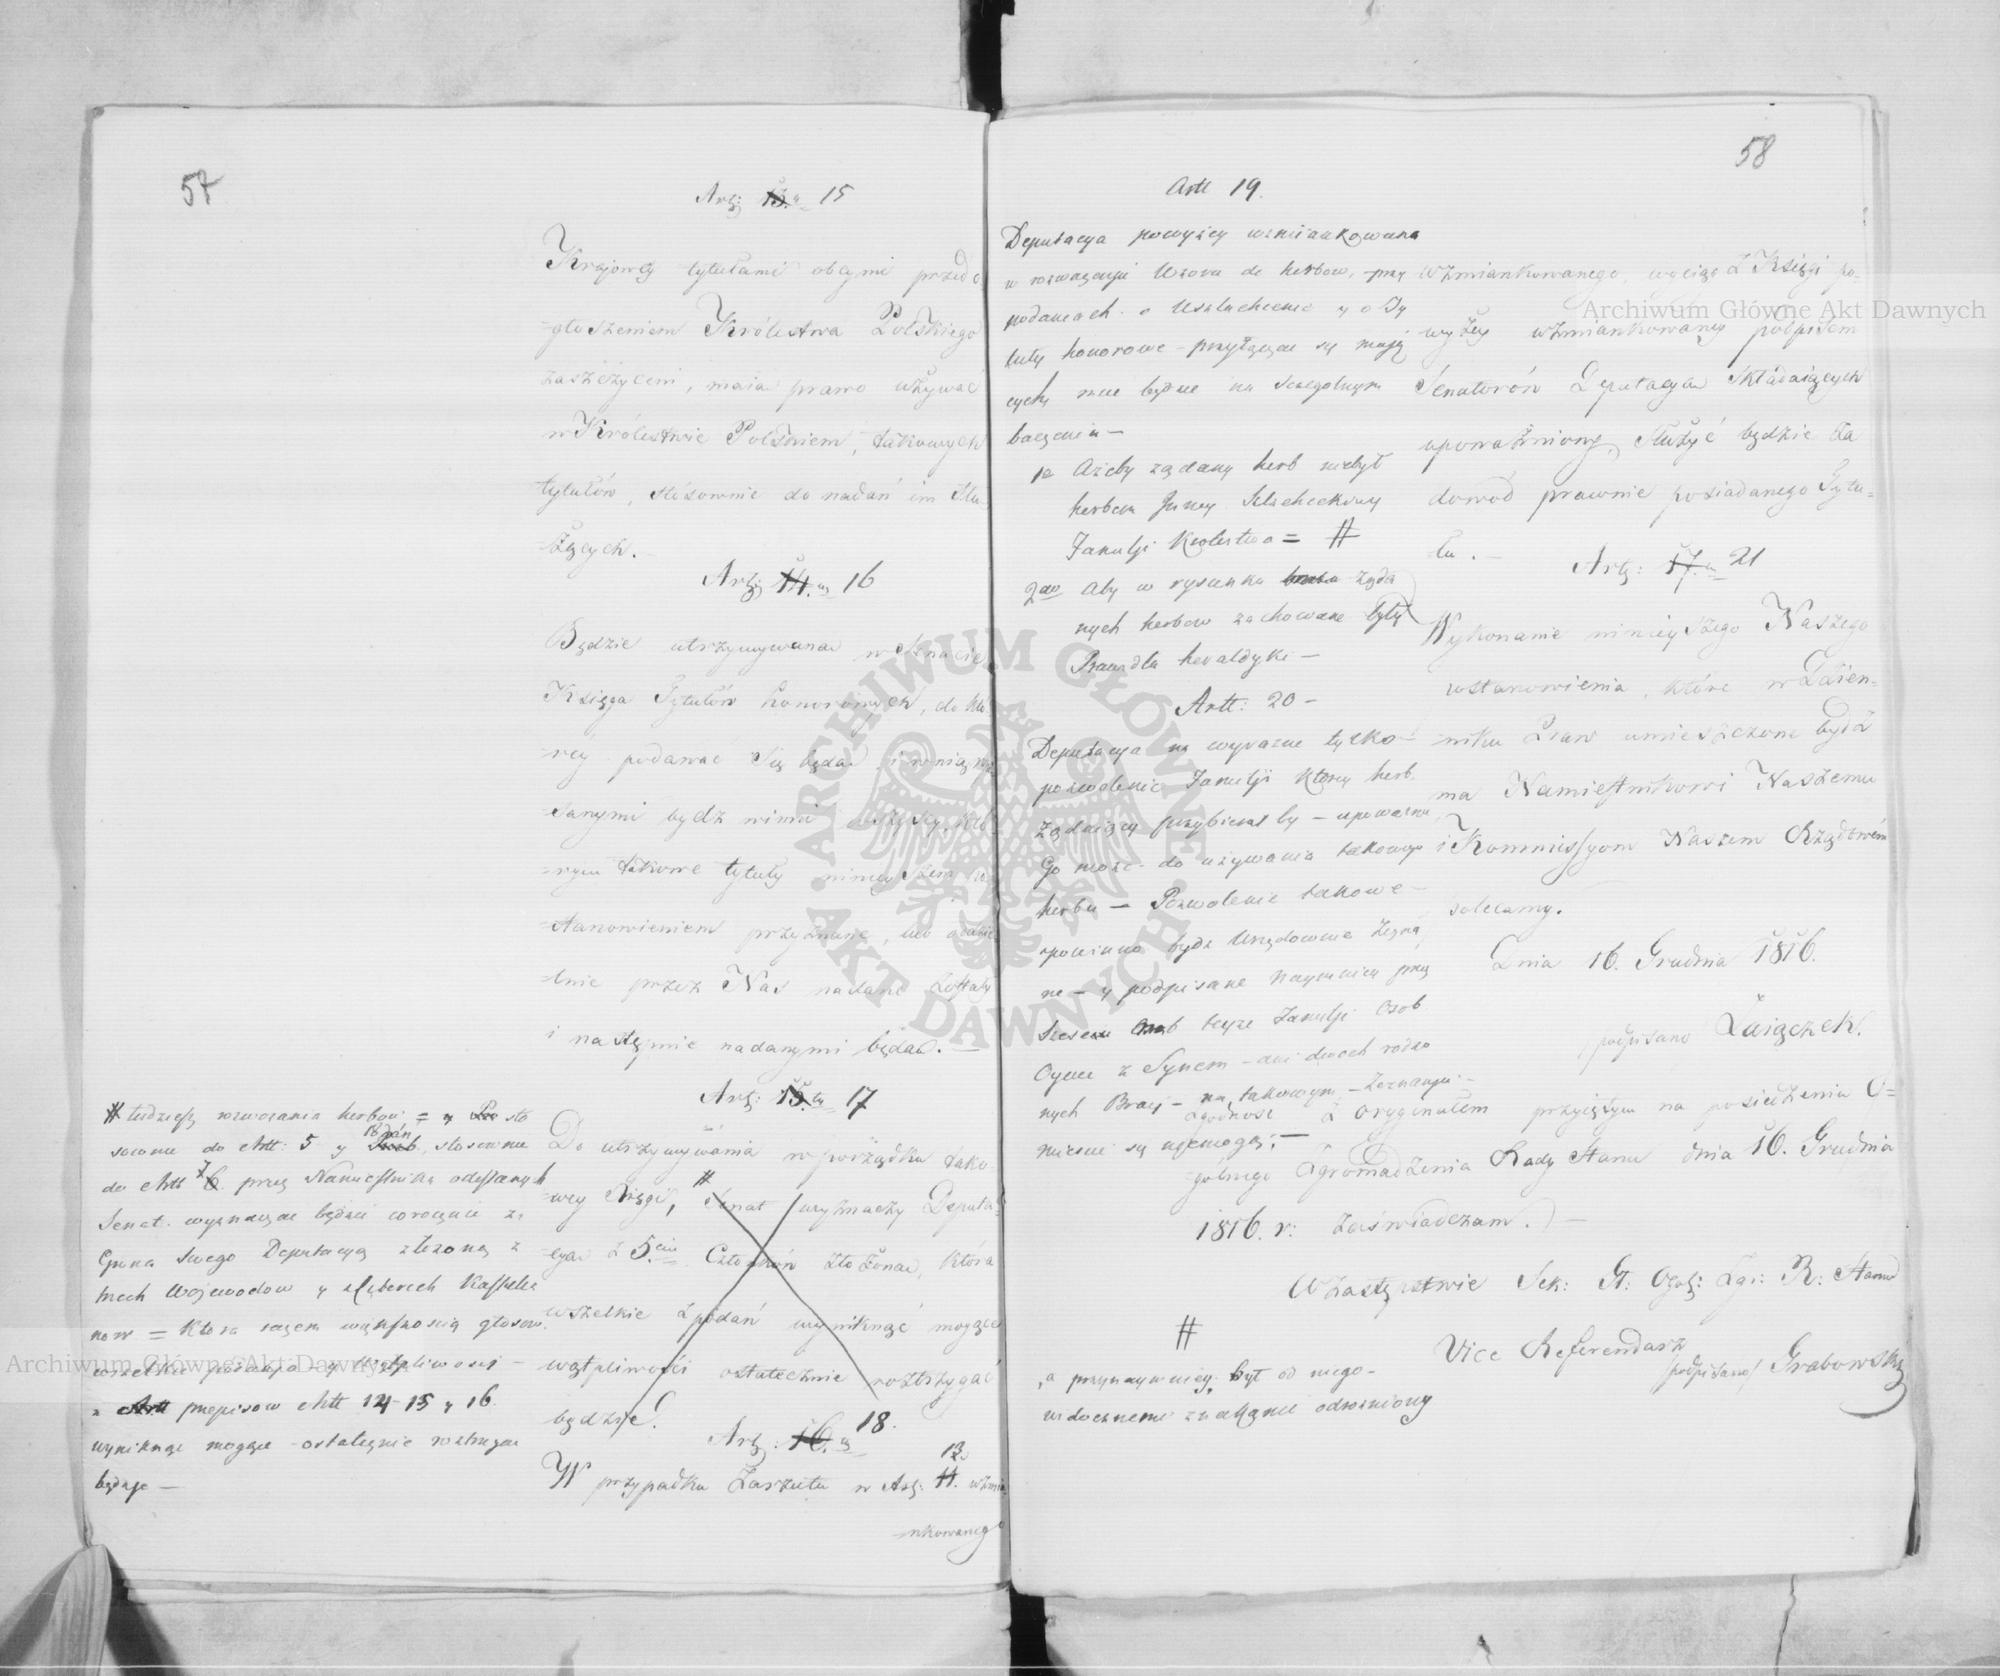 57
Art: 13. 15
Krajowcy tytułami obcymi przed o
=głoszeniem Królestwa Polskiego
zaszczyceni, maią prawo używać
w Królestwie Polskiem, takowych
tytułów, stósownie do nadań im słu
=żących.
Art: 14. 16
Będzie utrzymywana w Senacie
Księga Tytułów honorowych, do któ
=rey podawać się będą i wniesio
=nymi bydz winni wszyscy, któ
=rym takowe tytuły ninieyszem po
=stanowieniem przyznane, lub
=lnie przez Nas nadane zostały
i następnie nadanymi będą. —
Art: 15. 17
Do utrzymywania w porządku tako-
=wey Księgi, # Senat wyznaczy Deputa-
=cyą z 5. Członków złożoną, która
wszelkie z podań wyniknąć mogące
wątpliwości ostatecznie rozstrzygać
będzie.
Art: 16. 18.
W przypadku Zarzutu w Art: 11. 13 wzmia
=nkowanego
# tudzież rozwożania herbow = y sto
sownie do Artt: 5 y podań, stosownie
do Artt 7 6. przez Namiestnika odesłanych
Senat wyznaczać będzie corocznie z
Grona swego Deputacyą złożoną z
trzech Wojewodow y czterech Kasztela
now = która razem większością głosow
wszelkie podania y wątpliwości —
z Artt przepisow Artt 14-15 y 16
wyniknąć mogące ostatecznie roztrzygać
będzie —
58
Artt 19.
Deputacya powyżey wzmiankowana
w rozważaniu Wzoru do herbow, przy
podaniach o Uszlachcenie y o Ty
tuły honorowe — przyłączać się mają
cych, mieć będzie na szczególnym
baczeniu —
1e Ażeby żądany herb niebył
herbem Inney Szlacheckiey
Familji Krolestwa = #
2do Aby w rysunku żąda
nych herbow zachowane były
Prawidła heraldyki —
Artt: 20 —
Deputacya na wyraźne tylko
pozwolenie Familji ktorey herb
żądaiący przybierał by — upoważnić
Go może do używania takowego
herbu — Pozwolenie takowe —
powinno bydź Urzędownie zezna
ne — y podpisane naymniey przez
sześciu teyże Familji Osob
Oyciec z Synem — ani dwoch rodzo
nych Braci — na takowym — zeznaniu —
mieścić się niemogą: —
#
„a przynaymniey, był od niego —
widocznemi znakami odrożniony
wzmiankowanego, wyciąg z Księgi po-
wyżey wzmiankowaney podpisem
Senatorów Deputacyą składaiących
upoważniony, służyć będzie za
dowód prawnie posiadanego Tytu=
łu. —
Art: 17. 21
Wykonanie ninieyszego Naszego
postanowienia, które w Dzien=
niku Praw umieszczone bydź
ma Namiestnikowi Naszemu
i Kommissyom Naszem Rządowem
zalecamy.
Dnia 16. Grudnia 1816.
/podpisano/ Zaiączek.
Zgodność z oryginałem przyiętym na posiedzeniu O=
=gólnego Zgromadzenia Rady Stanu dnia 16. Grudnia
1816. r: Zaświadczam. —
W Zastępstwie Sek: St: Ogol: Zgr: R: Stanu
Vice Referendarz
/podpisano/ Grabowski
Archiwum Główne Akt Dawnych
Archiwum Główne Akt Dawnych
ARCHIWUM GŁÓWNE AKT DAWNYCH